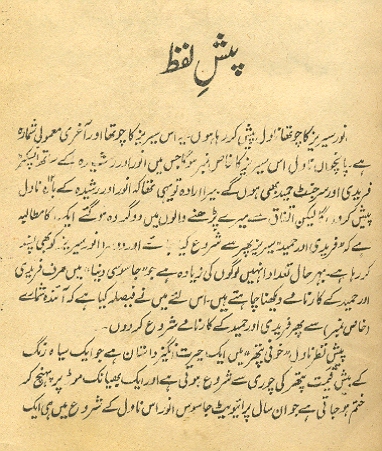 پیش لفظ
انور سیریز کا چوتھا ناول پیش کر رہا ہوں۔ یہ اس سیریز کا چوتھا اور آخری معمولی شمارہ
ہے۔ پانچواں ناول اس سیریز کا خاص نمبر ہوگا جس میں انور اور رشیدہ کے ساتھ انسپکٹر
فریدی اور سرجنٹ حمید بھی ہوں گے۔ میرا ارادہ تو یہی تھا کہ انور اور رشیدہ کے بارہ ناول
پیش کروں گا لیکن اتفاق سے میرے پڑھنے والوں میں دو گروہ ہو گئے ایک کا مطالبہ
ہے کہ "فریدی اور حمید" سیریز پھر سے شروع کی اور دوسرا انور سیریز کو بھی پسند
کر رہا ہے۔ بہرحال تعداد انہیں لوگوں کی زیادہ ہے جو "جاسوسی دنیا" میں صرف فریدی
اور حمید کے کارنامے دیکھنا چاہتے ہیں۔ اس لئے میں نے فیصلہ کیا ہے کہ آئندہ شمارے
(خاص نمبر) سے پھر فریدی اور حمید کے کارنامے شروع کردوں۔
پیش نظر ناول "خونی پتھر" میں ایک حیرت انگیز داستان ہے جو ایک سیاہ رنگ
کے بیش قیمت پتھر کی چوری سے شروع ہوتی ہے اور ایک بھیانک موڑ پر پہنچ کر
ختم ہو جاتی ہے جو ان سال پرائیویٹ جاسوس انور اس ناول کے شروع میں ہی ایک